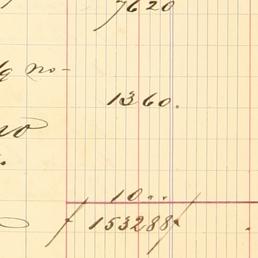 7620
no-
1360.
no
10..
153288